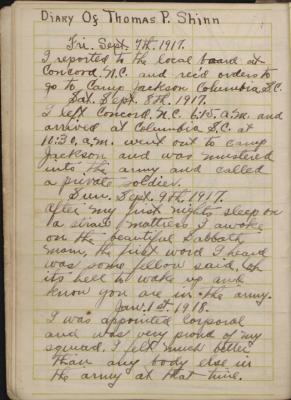 Diary Of Thomas P. Shinn
Fri. Sept. 7th. 1917.
I reported to the local board at
Concord, N.C. and rec'd orders to
go to Camp Jackson Columbia, S.C.
Sat. Sept. 8th. 1917.
I left Concord, N.C. 6:15 a.m. and
arrived at Columbia S.C. at
11:30 a.m. went out to camp
Jackson and was mustered
into the army and called
a private soldier.
Sun. Sept. 9th. 1917.
After my first nights sleep on
a straw mattress I awoke
on the beautiful Sabbath
morn, the first word I heard
was some fellow said, Oh
its hell to wake up and
know you are in the army.
Jan. 1st. 1918.
I was appointed Corporal
and was very proud of my
squad. I felt much better
than any body else in
the army at that time.